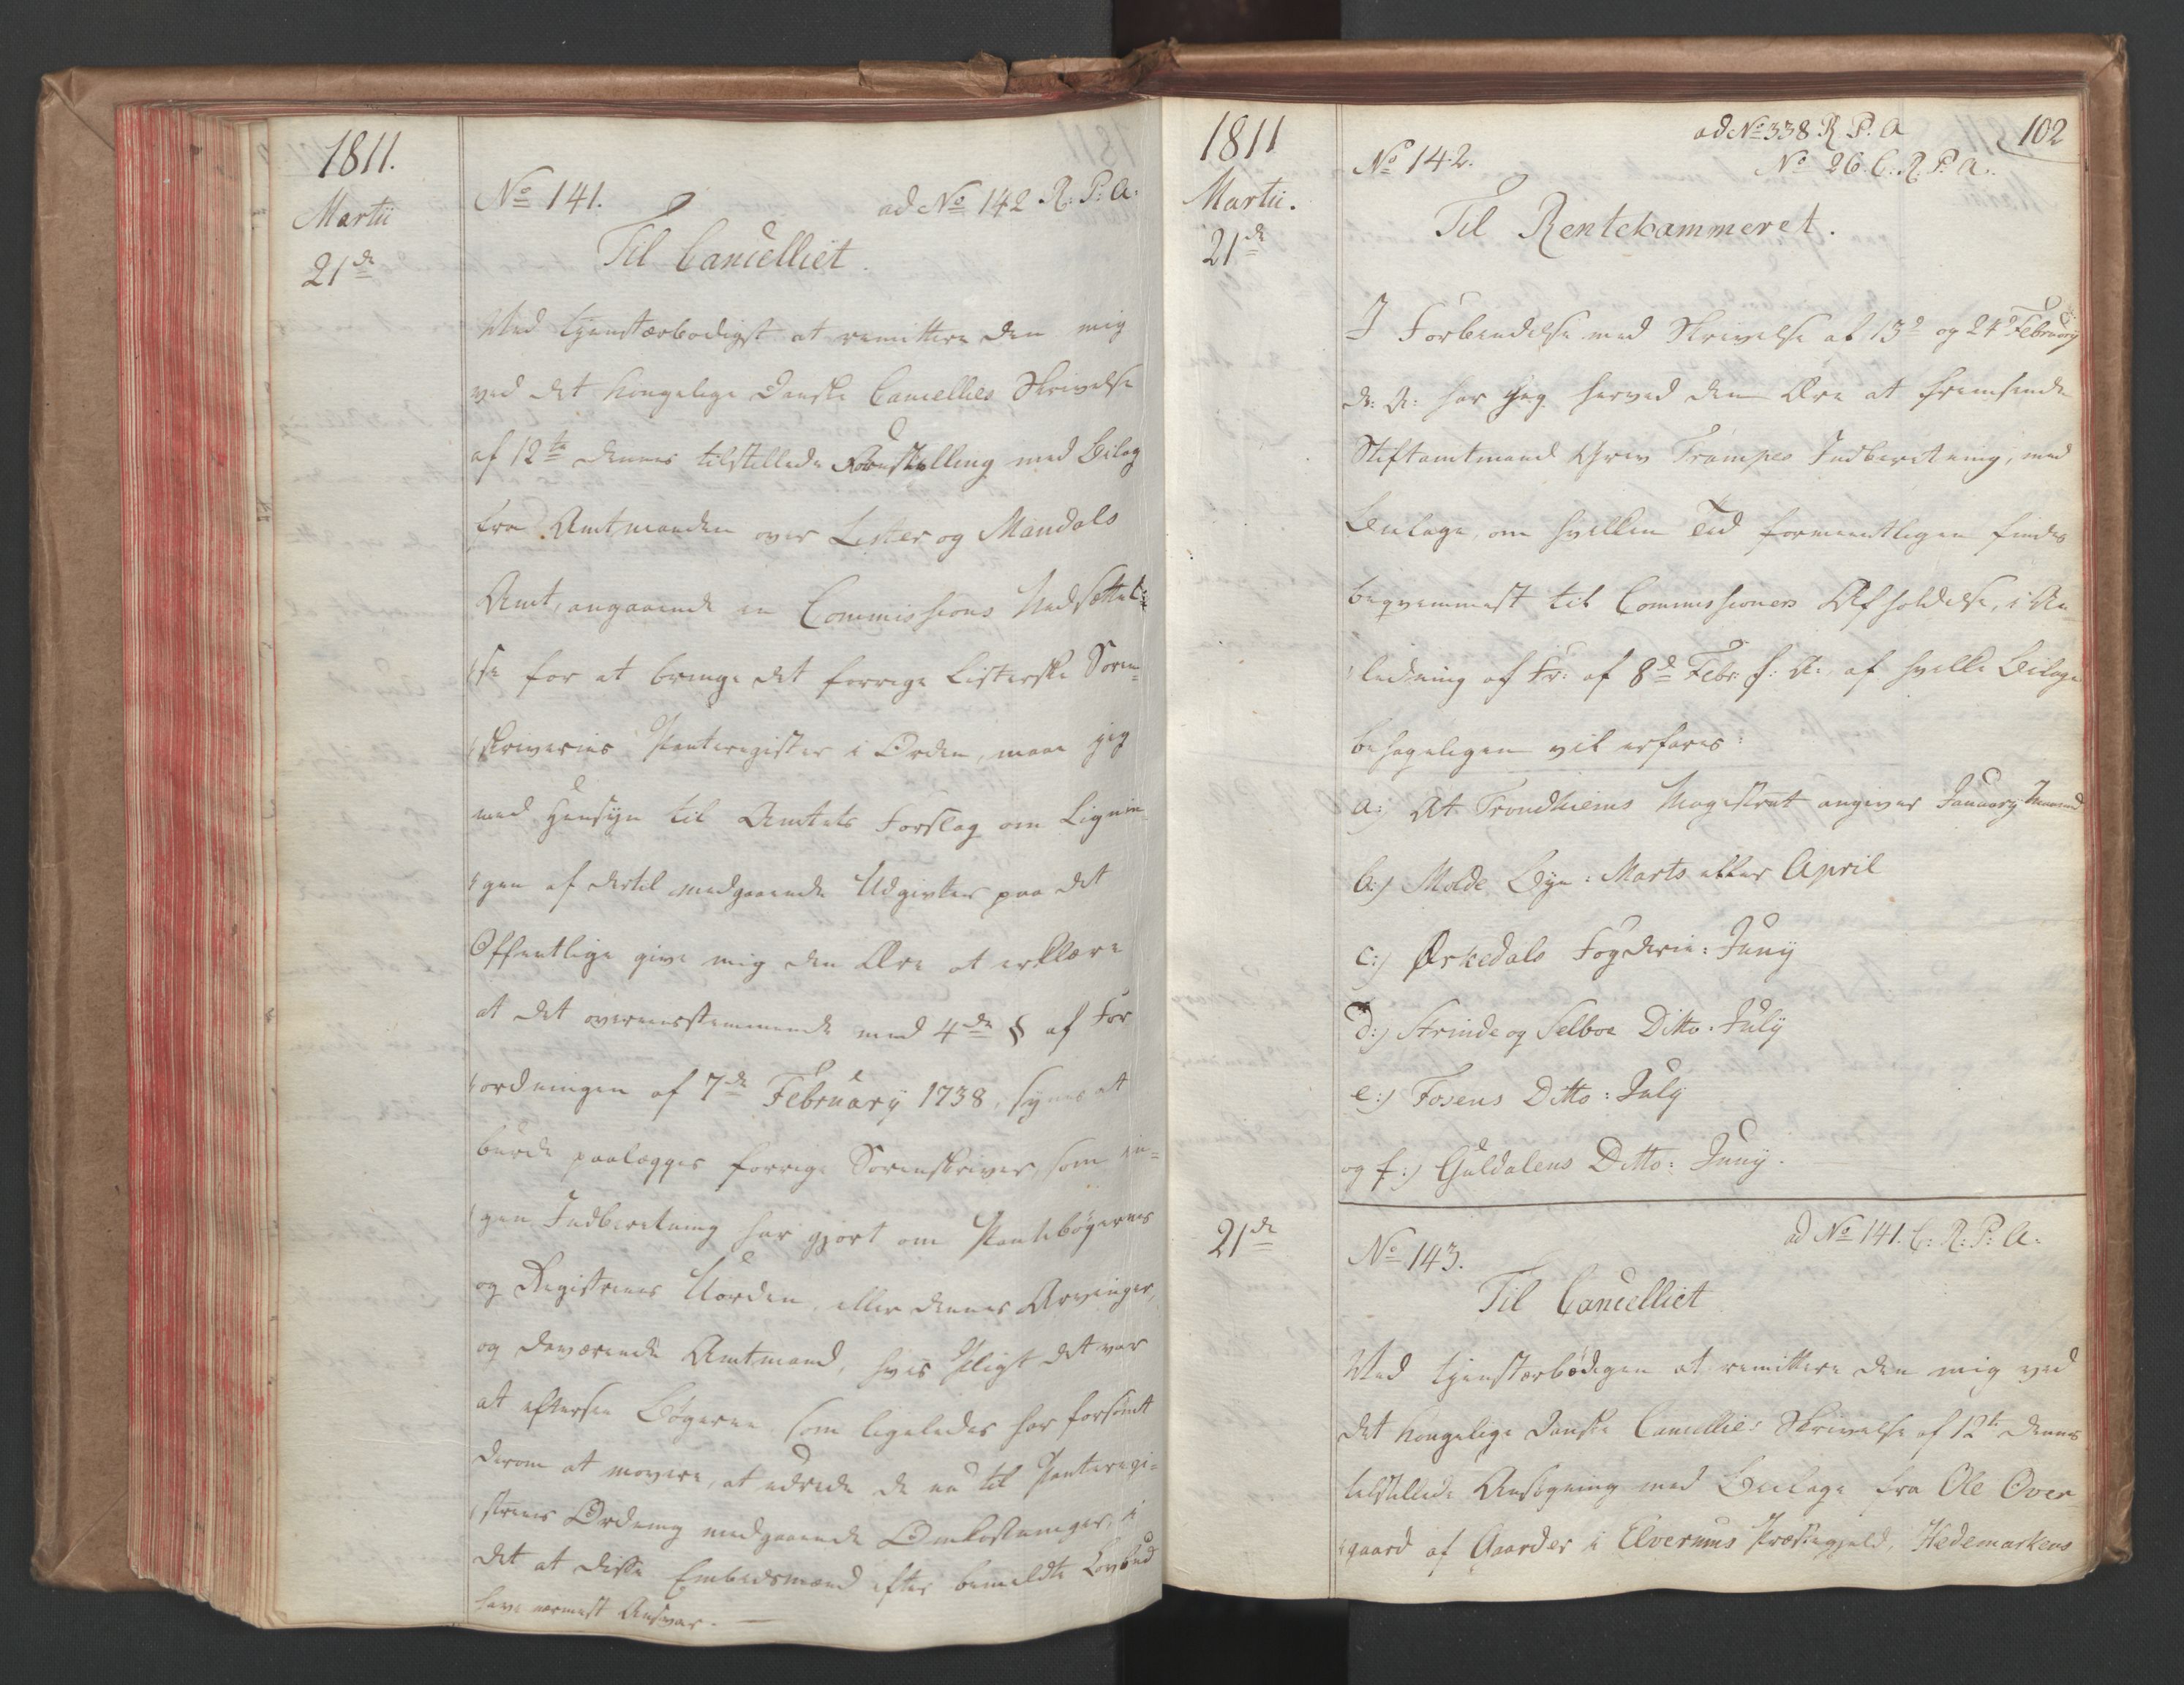 1811.
Martii
21de
No 141.
ad No 142 R: P: A:
Til Cancelliet.
Ved tienstærbødigst at remittere den mig
ved det kongelige Danske Cancellies Skrivelse
af 12te dennes tilstillede Forestilling med Bilag
fra Amtmanden over Lister og Mandals
Amt, angaaende en Commissions Nedsættel-
se for at bringe det forrige Listerske Soren-
skriveries Panteregister i Orden, maae jeg
med Hensyn til Amtets Forslag om Lignin-
gen af dertil medgaaende Udgivter paa det
Offentlige give mig den Ære at erklære
at det overeensstemmende med 4de § af For
ordningen af 7de February 1738, synes at
burde paalægges forrige Sorenskriver, som in-
gen Indberetning har gjort om Pantebøgernes
og Registrenes Uorden, eller dennes Arvinger,
og daværende Amtmand, hvis Pligt det var
at eftersee Bøgerne, som ligeledes har forsømt
derom at movere, at udrede de nu til Panteregi-
strenes Ordning medgaaende Omkostninger, i
det at disse Embedsmænd efter bemeldte Lovbud
have nærmest Ansvar.
1811
Martii.
21de
ad No 338 R. P. A
102
No 142.
No 26 C: R: P: A.
Til Rentekammeret.
I Forbindelse med Skrivelse af 13de og 24de February
d: A: har jeg herved den Ære at fremsende
Stiftamtmand Grev Trampes Indberetning, med
Beilage, om hvilken Tid formeentligen findes
beqvemmest til Commissioners Afholdelse, i An-
ledning af Fr: af 8de Febr: f: A: af hvilke Bilage
behageligen vil erfares:
a:) At Trondhiems Magistrat angiver January Maaned
b:) Molde Bye: Marts eller April
c:) Ørkedals Fogderie: Juny
d:) Strinde og Selboe Ditto: July
e:) Fosens Ditto: July
og f:) Guldalens Ditto: Juny.
21de
ad No 141. C: R: P: A.
No 143.
Til Cancelliet
Ved tienstærbødigen at remittere den mig ved
det kongelige danske Cancellies Skrivelse af 12te dennes
tilstillede Ansøgning med Beilage fra Ole Over-
gaard af Gaarder i Elverums Præstegjeld, Hedemarkens